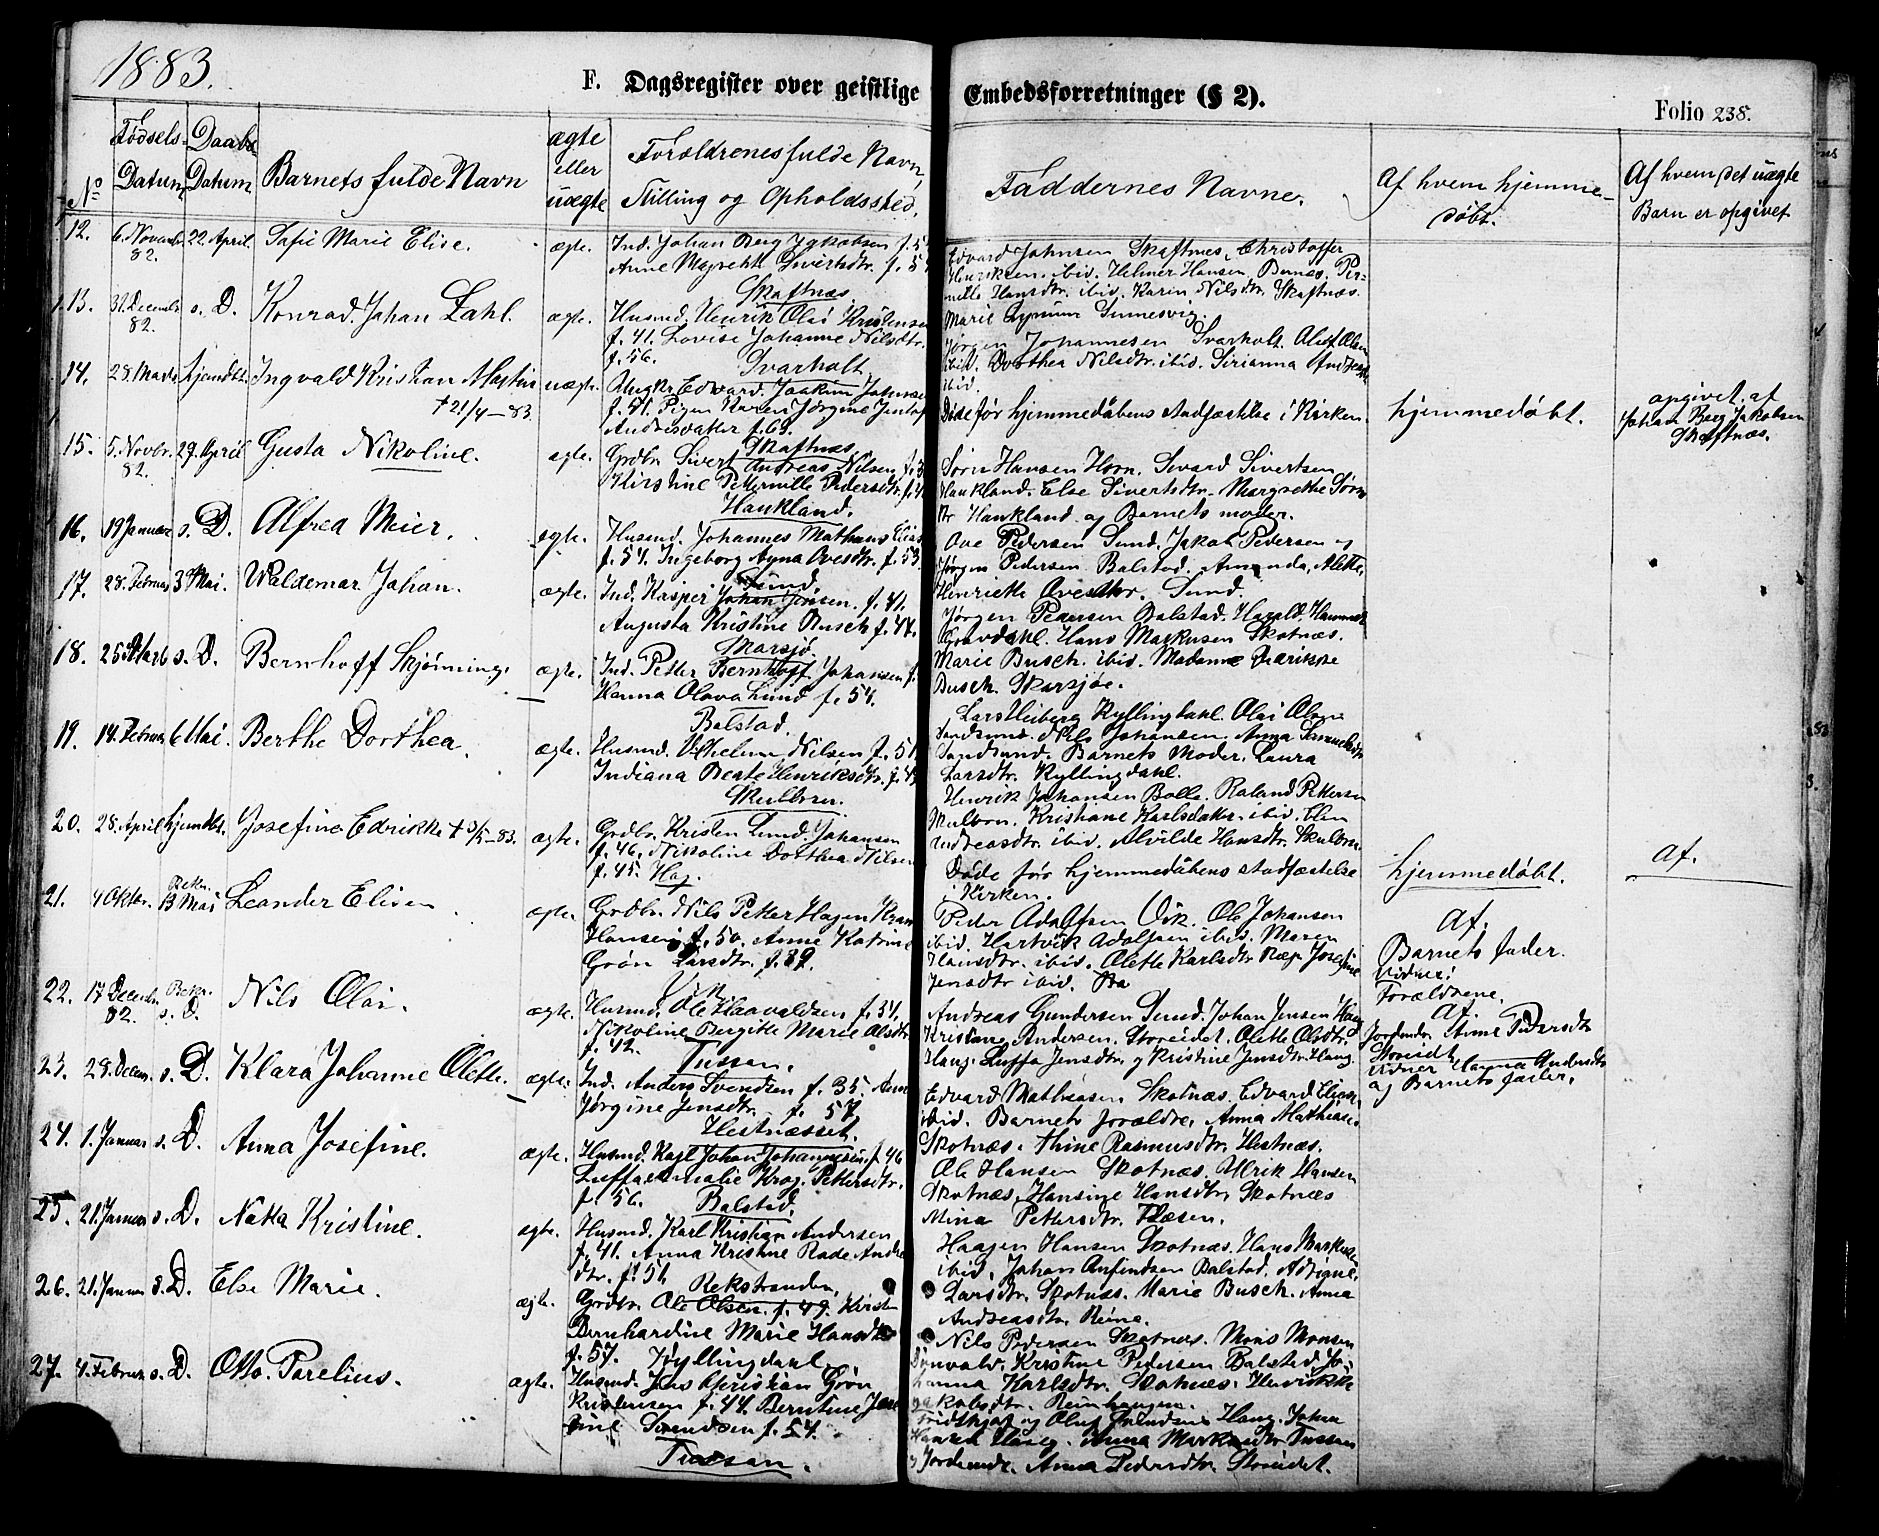 1883.
F. Dagsregister over geistlige Embedsforretninger (§ 2).
Folio 238.
No
Fødsels-
Datum
Daabs
Datum
Barnets fulde Navn
ægte
eller
uægte
Forældrenes fulde Navn,
Stilling og Opholdssted.
Faddernes Navne.
Af hvem hjemme-
døbt.
Af hvem det uægte
Barn er opgivet
12. 6 Novembr 82. 22 April. Sofie Marie Elise. ægte.
Ind. Johan Berg Jakobsen f.
Anne Magrethe Sivertsdtr. f.
Skaftnæs.
Edvard Johnsen Skaftnes, Christoffer
Henriksen. ibid. Helmer Hansen, Per-
nille Hansdtr. ibid. Karen Nilsdtr. Skaftnæs.
Marie
13. 31. Decembr 82. s. D. Konrad Johan Dahl. ægte.
Husmd. Henrik Olai Kristensen
f. 41. Lovise Johanne Nilsdtr.
f. 56. Svarholt.
Jørgen Johannesen Svarholt. Oluf Olsen
ibid. Dorthea Nilsdtr. ibid. Sirianna
ibid.
14. 28. Marts hjemdbt. Ingvald Kristian Martin uægte.
† 21/4 - 83.
Ungkr. Edvard Joakim Johnsen
f. 61. Pigen Karen Jørgine
Andreasdatter f. 63.
Skaftnæs.
Døde før hjemmedåbens stadfæstelse i Kirken.
hjemmedøbt.
opgivet af
Johan Berg Jakobsen
Skaftnæs.
15. 5. Novbr. 82. 29. April Gusta Nikoline. ægte.
Grdbr. Sivert Andreas Nilsen f.
Kirstine Petternille Pedersdtr. f.
Haukland.
Søren Hansen Horn. Sivard Sivertsen
Haukland. Else Sivertsdtr. Margrethe Sørens
dtr Haukland. og Barnets moder.
16. 19 Januar s. D. Alfred Meier. ægte.
Husmd. Johannes Mathias Elias
f. 54. Ingeborg Anna Ovesdtr. f. 53.
Sund.
Ove Pedersen Sund. Jakob Pedersen og
Jørgen Pedersen Balstad. Amanda, Alette,
Henriette Ovesdtr. Sund.
17. 28. Februar 3 Mai. Waldemar Johan. ægte.
Ind. Kasper Johan Jensen. f. 41.
Augusta Kristine Busch f. 44.
Marsjø.
Jørgen Pedersen Balstad. Harald Hammer
Gravdahl. Hans Markusen Skotnæs.
Marie Busch. ibid. Madame
Busch. Skarsjøe.
18. 25 Marts s. D. Bernhoff Skjønning. ægte.
Ind. Petter Bernhoff Johansen f.
Hanna Olava Lund f. 54.
Balstad.
Lars Heiberg Kyllingdahl. Olai Olsen
Sandsund. Nils Johansen. Anna Samuelsdtr
Sandsund. Barnets Moder. Laura
Larsdtr. Kyllingdahl.
19. 14. Februar 6 Mai. Berthe Dorthea. ægte.
Husmd. Vilhelm Nilsen f. 51
Indiana Beate Henriksdtr. f. 49
Skulbren.
Henrik Johansen Bolle. Roland Pettersen
Skulbren. Kristiane Karlsdatter. ibid. Elen
Andreasdtr. ibid. Alvilde Hansdtr. Skulbren
20. 28. April hjemdbt. Josefine Edrikke † 3/5 - 83. ægte.
Grdbr. Kristen Lund. Johansen
f. 46. Nikoline Dorthea Nilsen
f. 45. Hag.
Døde før hjemmedåbens stadfæstelse
i Kirken.
hjemmedøbt.
af.
21. 4 Oktbr. Bekr. 13 Mai. Leander Elisen ægte.
Grdbr. Nils Petter Hagen Kram
Hansen f. 50. Anne Katrine
Grøn Larsdtr. f. 39.
Vik.
Peder Adolfsen Vik. Ole Johansen
ibid. Hartvik Adolfsen ibid. Maren
Hansdtr. ibid. Olette Karlsdtr Ræp Josefine
Jensdtr ibid.
af.
Barnets fader.
Vidner:
Forældrene.
22. 17 Decembr. 82. Bekr. s. D. Nils Olai. ægte.
Husmd. Ole Haavaldsen f. 51.
Nikoline Bergitte Marie Olsdtr
f. 42.
Tussan.
Andreas Gundersen Sund. Johan Jensen Haug
Kristine Andersen. Storeidet. Olette Olsdtr.
Haug. Luffa Jensdtr. og Kristine Jensdtr. Haug.
af.
Jordmdr. Anne Pedersdtr
Storeidt
Vidner Hanna Andersdtr
og Barnets fader.
23. 28. Decem. s. D. Klara Johanne Olette. ægte.
Ind. Anders Svendsen f. 35. Anne
Jørgine Jensdtr. f. 57.
Hestnæsset.
Edvard Mathiasen Skotnæs. Edvard Eliasen
ibid. Barnets forældre. Anna Mathiasd.
Skotnæs. Thine Rasmusdtr. Hestnæs.
24. 1. Januar s. D. Anna Josefine. ægte.
Husmd. Karl Johan Johannesen. f. 46
Luffa Amalie Krog. Pettersdtr.
f. 56. Balstad.
Ole Hansen Skotnæs. Ulrik Hansen
Skotnæs. Hansine Hansdtr. Skotnæs
Mina Pettersdtr.
25. 21. Januar s. D. Naka Kristine. ægte.
Husmd. Karl Kristian Andersen
f. 41. Anna Kristine Rade Andre
dtr. f. 51
Rekstranden.
Haagen Hansen Skotnæs. Hans Markusen
ibid. Johan Balstad. Adriane
Larsdtr. Skotnæs. Marie Busch. Anna
Andreasdtr. Reine.
26. 21. Januar s. D. Else Marie. ægte.
Grdbr. Ole Olsen. f. 49. Kirsten
Bernhardine Marie Hansdtr
f. 57. Kyllingdahl.
Nils Pedersen Skotnæs. Mons Monsen
Kristine Pedersen Balstad. Jo-
hanna Karlsdtr. Skotnæs. Henrikke
Jakobsdtr.
27. 4. Februar s. D. Otto Parelius. ægte.
Husmd. Jens Christian Grøn
Kristensen f. 44. Berntine Jose
fine Svendsen f. 54.
Tussan.
Fridthjof og Oluf Svendsen Haug. Johan
Haug. Anna Markusdtr. Tussan
og Jordemdr. Anna Pedersdtr. Storeidet.